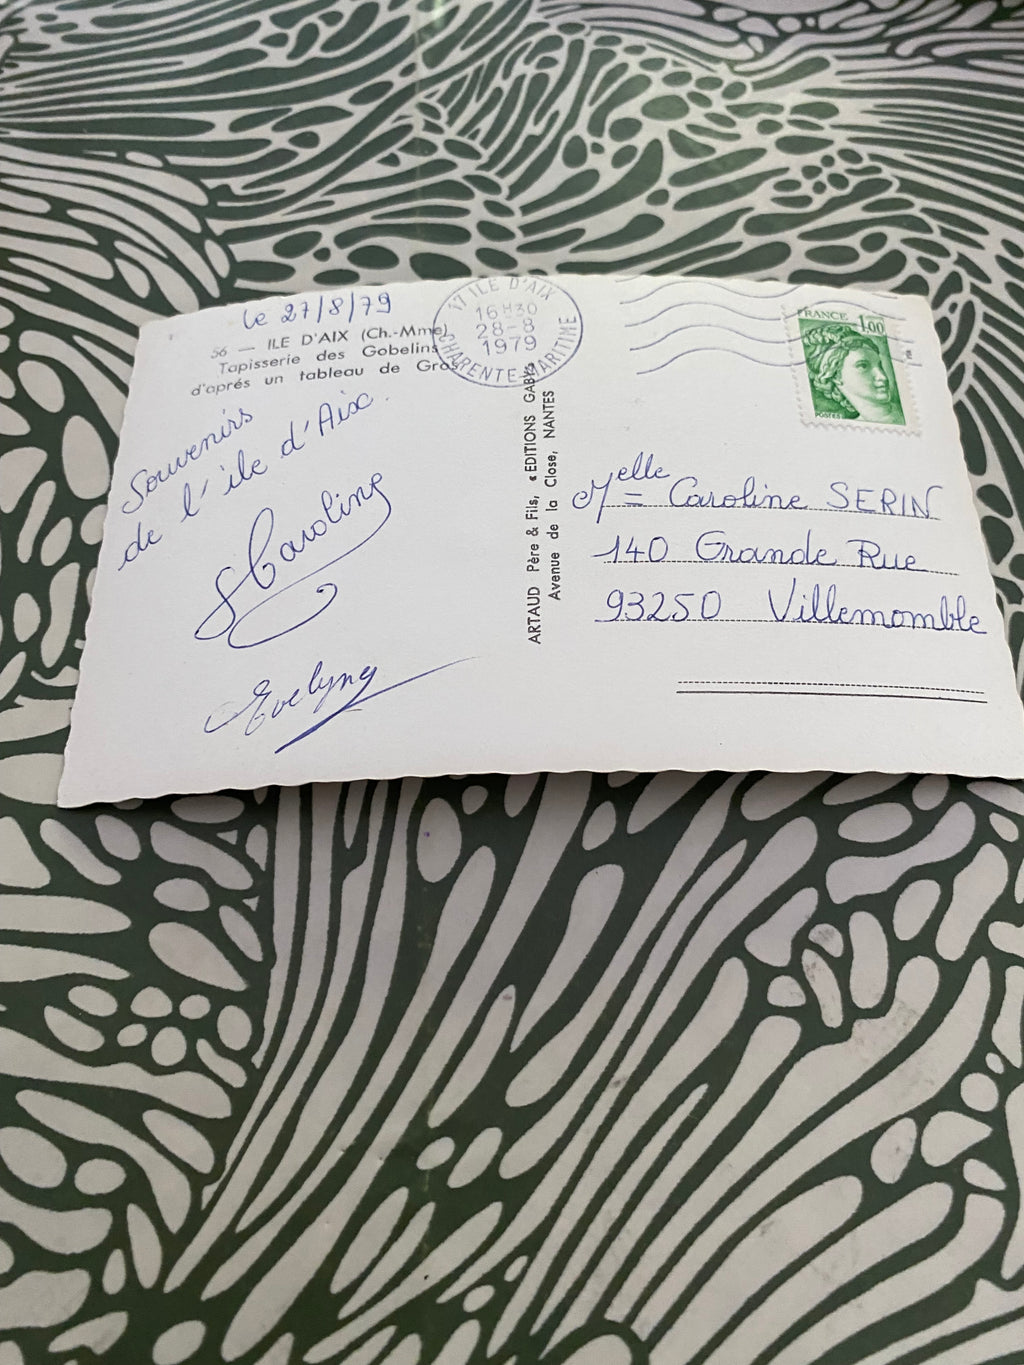 le 27/8/79
56 — ILE D'AIX (Ch.-Mme)
Tapisserie des Gobelins
d'aprés un tableau de Gros
Souvenirs
de l'île d'Aix.
Caroline
Evelyne
17 ILE D'AIX
16H30
28-8
1979
CHARENTE-MARITIME
ARTAUD Père & Fils, « EDITIONS GABY»
Avenue de la Close, NANTES
FRANCE 1,00
POSTES
Melle Caroline SERIN
140 Grande Rue
93250 Villemomble